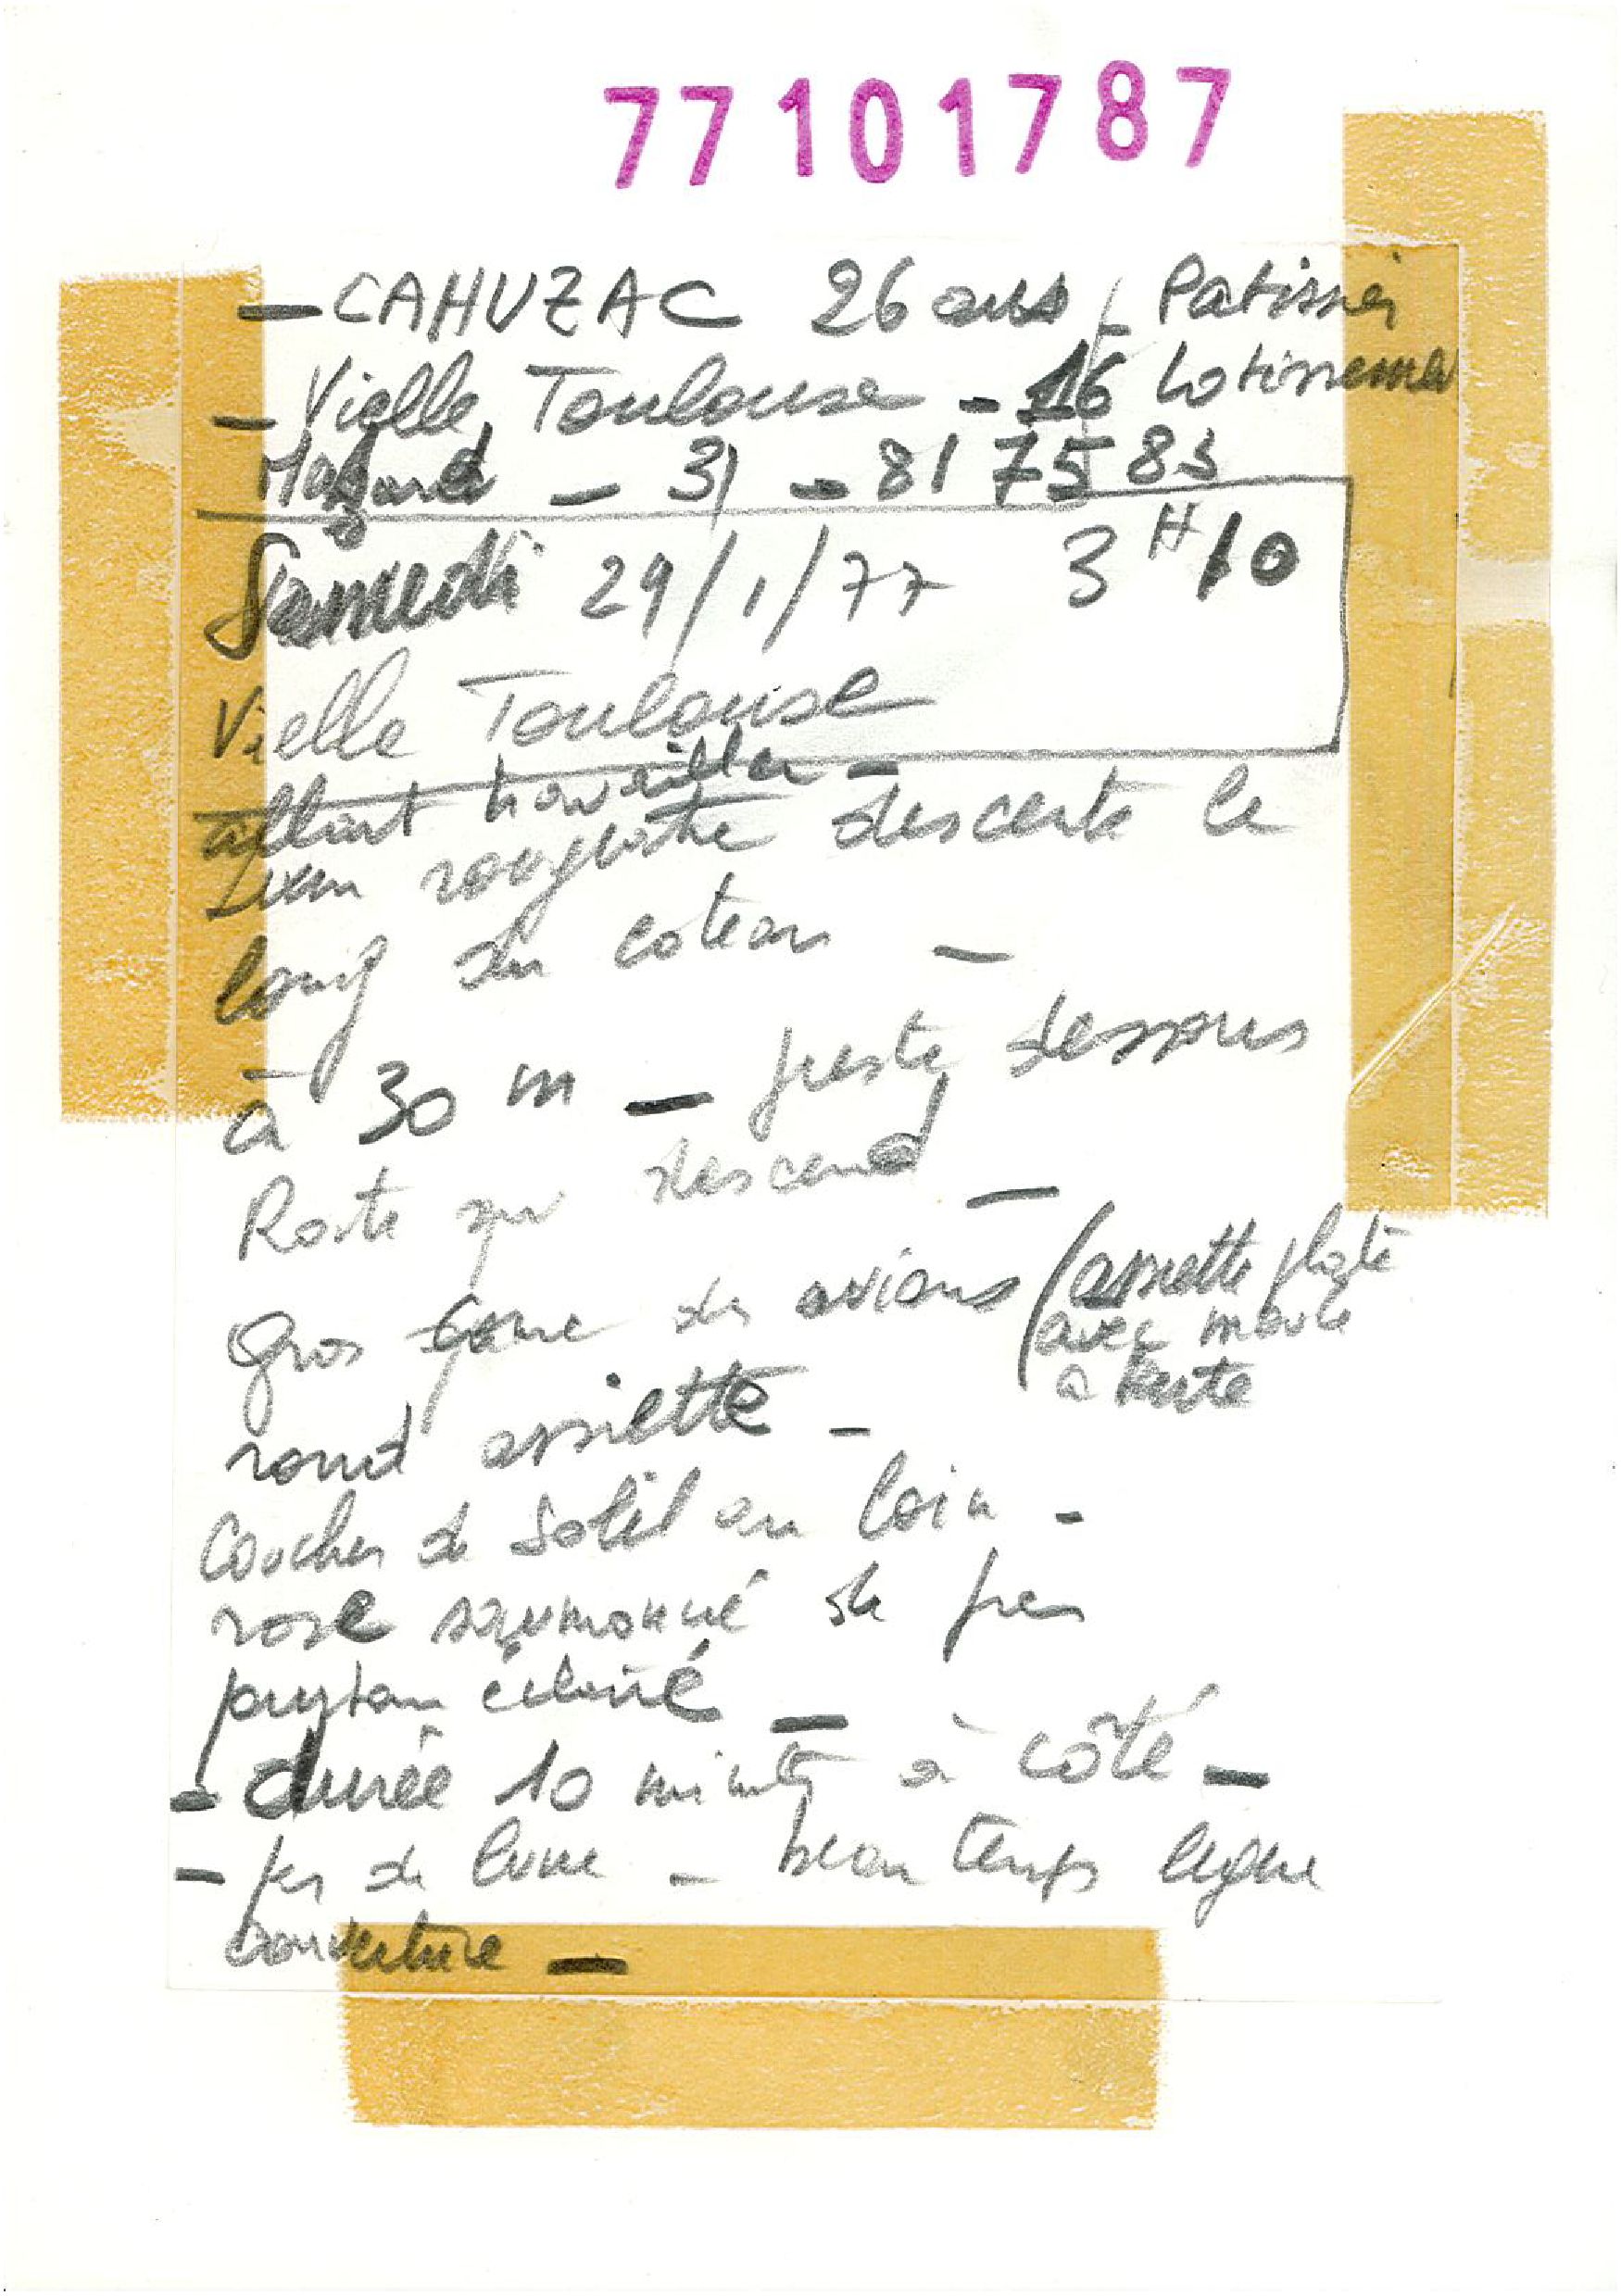 77101787
- CAHUZAC 26 ans / Patissier
- Vielle Toulouse - 16 Lotissement
- 31 - 81 75 83
Samedi 29/1/77 3H10
Vielle Toulouse
allant travailler -
rougeatre descente le
long du coteau -
à 30 m - juste dessous
Route qui descend -
Gros comme des avions (assiette plate
avec moule
a tarte
rond assiette -
Coucher de Soleil au loin -
rose saumonné de feu
éclairé -
- durée 10 minutes à côté -
- pas de lune - beau temps légère
couverture -